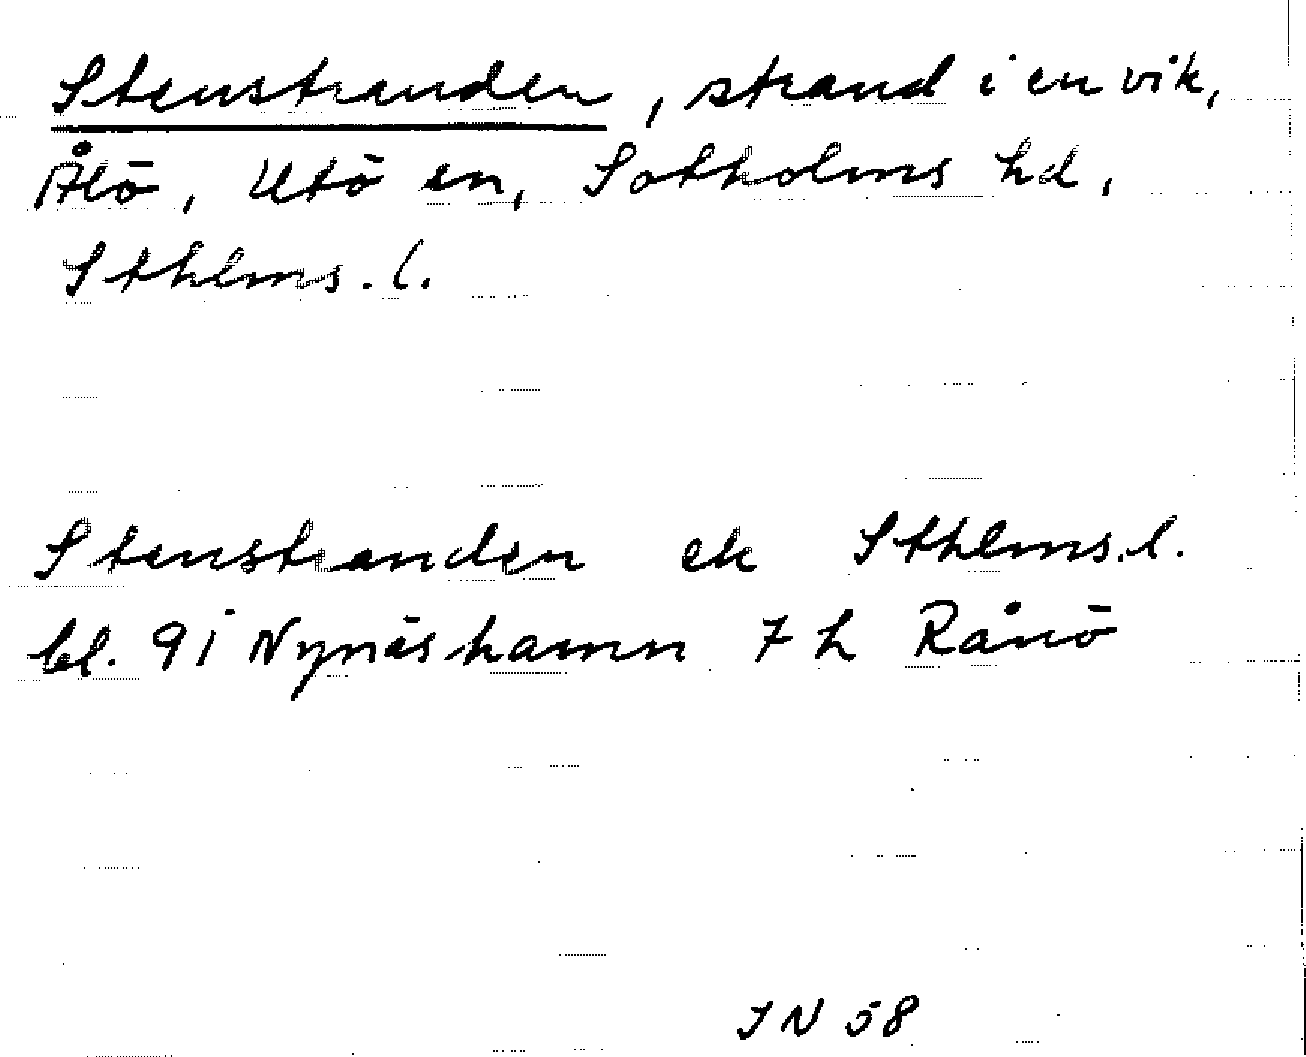 Stenstranden, strand i en vik,
Ålö, Utö sn, Sotholms hd,
Sthlms. l.
Stenstranden ek Sthlms. l.
bl. 91 Nynäshamn 7 h Rånö
IN 58